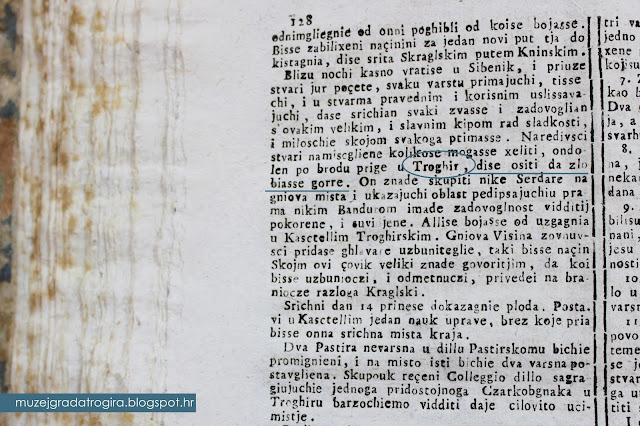 128
ednimgliegnie od onni poghibli od koise bojasse.
Bisse zabilixeni naçinini za jedan novi put tja do
kistagnia, dise srita Skraglskim putem Kninskim.
Blizu nochi kasno vratise u Sibenik, i priuze
stvari jur poçete, svaku varstu primajuchi, tisse
chi, i u stvarma pravednim i korisnim uslissava-
juchi, dase srichian svaki zvasse i zadovoglian
s'ovakim velikim, i slavnim kipom rad sladkosti,
i miloschie skojom svakoga primasse. Naredivsci
stvari namisegliene kolikose mogasse xeliti, ondo-
len po brodu prige u Troghir, dise ositi da zlo
biasse gorre. On znade skupiti nike Serdare na
gniova mista i ukazajuchi oblast pedipsajuchiu pra-
ma nikim Bandurom imade zadovoglnost vidditij
pokorene, i suvi jene. Allise bojasse od uzgagnia
u Kasctellim Troghirskim. Gniova Visina zovnuv-
sci pridase ghlavare uzbuniteglie, taki bisse naçin
Skojm ovi çovik veliki znade govoritjim, da koi
bisse uzbunioczi, i odmetnuczi, privedei na bra-
nioczе razloga Kraglski.
Srichni dan 14 prinese dokazagnie ploda. Posta-
vi u Kasctellim jedan nauk uprave, brez koje pria
bisse onna srichna mista kraja.
Dva Pastira nevarsna u dillu Pastirskomu bichie
promignieni, i na misto isti bichie dva varsna po-
stavgliena. Skupouk reçeni Colleggio dillo sagra-
giujuchie jednoga pridostojnoga Czarkobgnaka u
Troghiru barzochiemo vidditi daje cilovito uci-
mistje.
tri va
jedno
xene
kojisu
7.
kao b
Dva
ja, a
8.
la,
nekan
dan
9.
bilisu
nani,
jesu
nosti
10
lo u
varsn
11
povo
teme
se j
stvar
gat
muzejgradatrogira.blogspot.hr